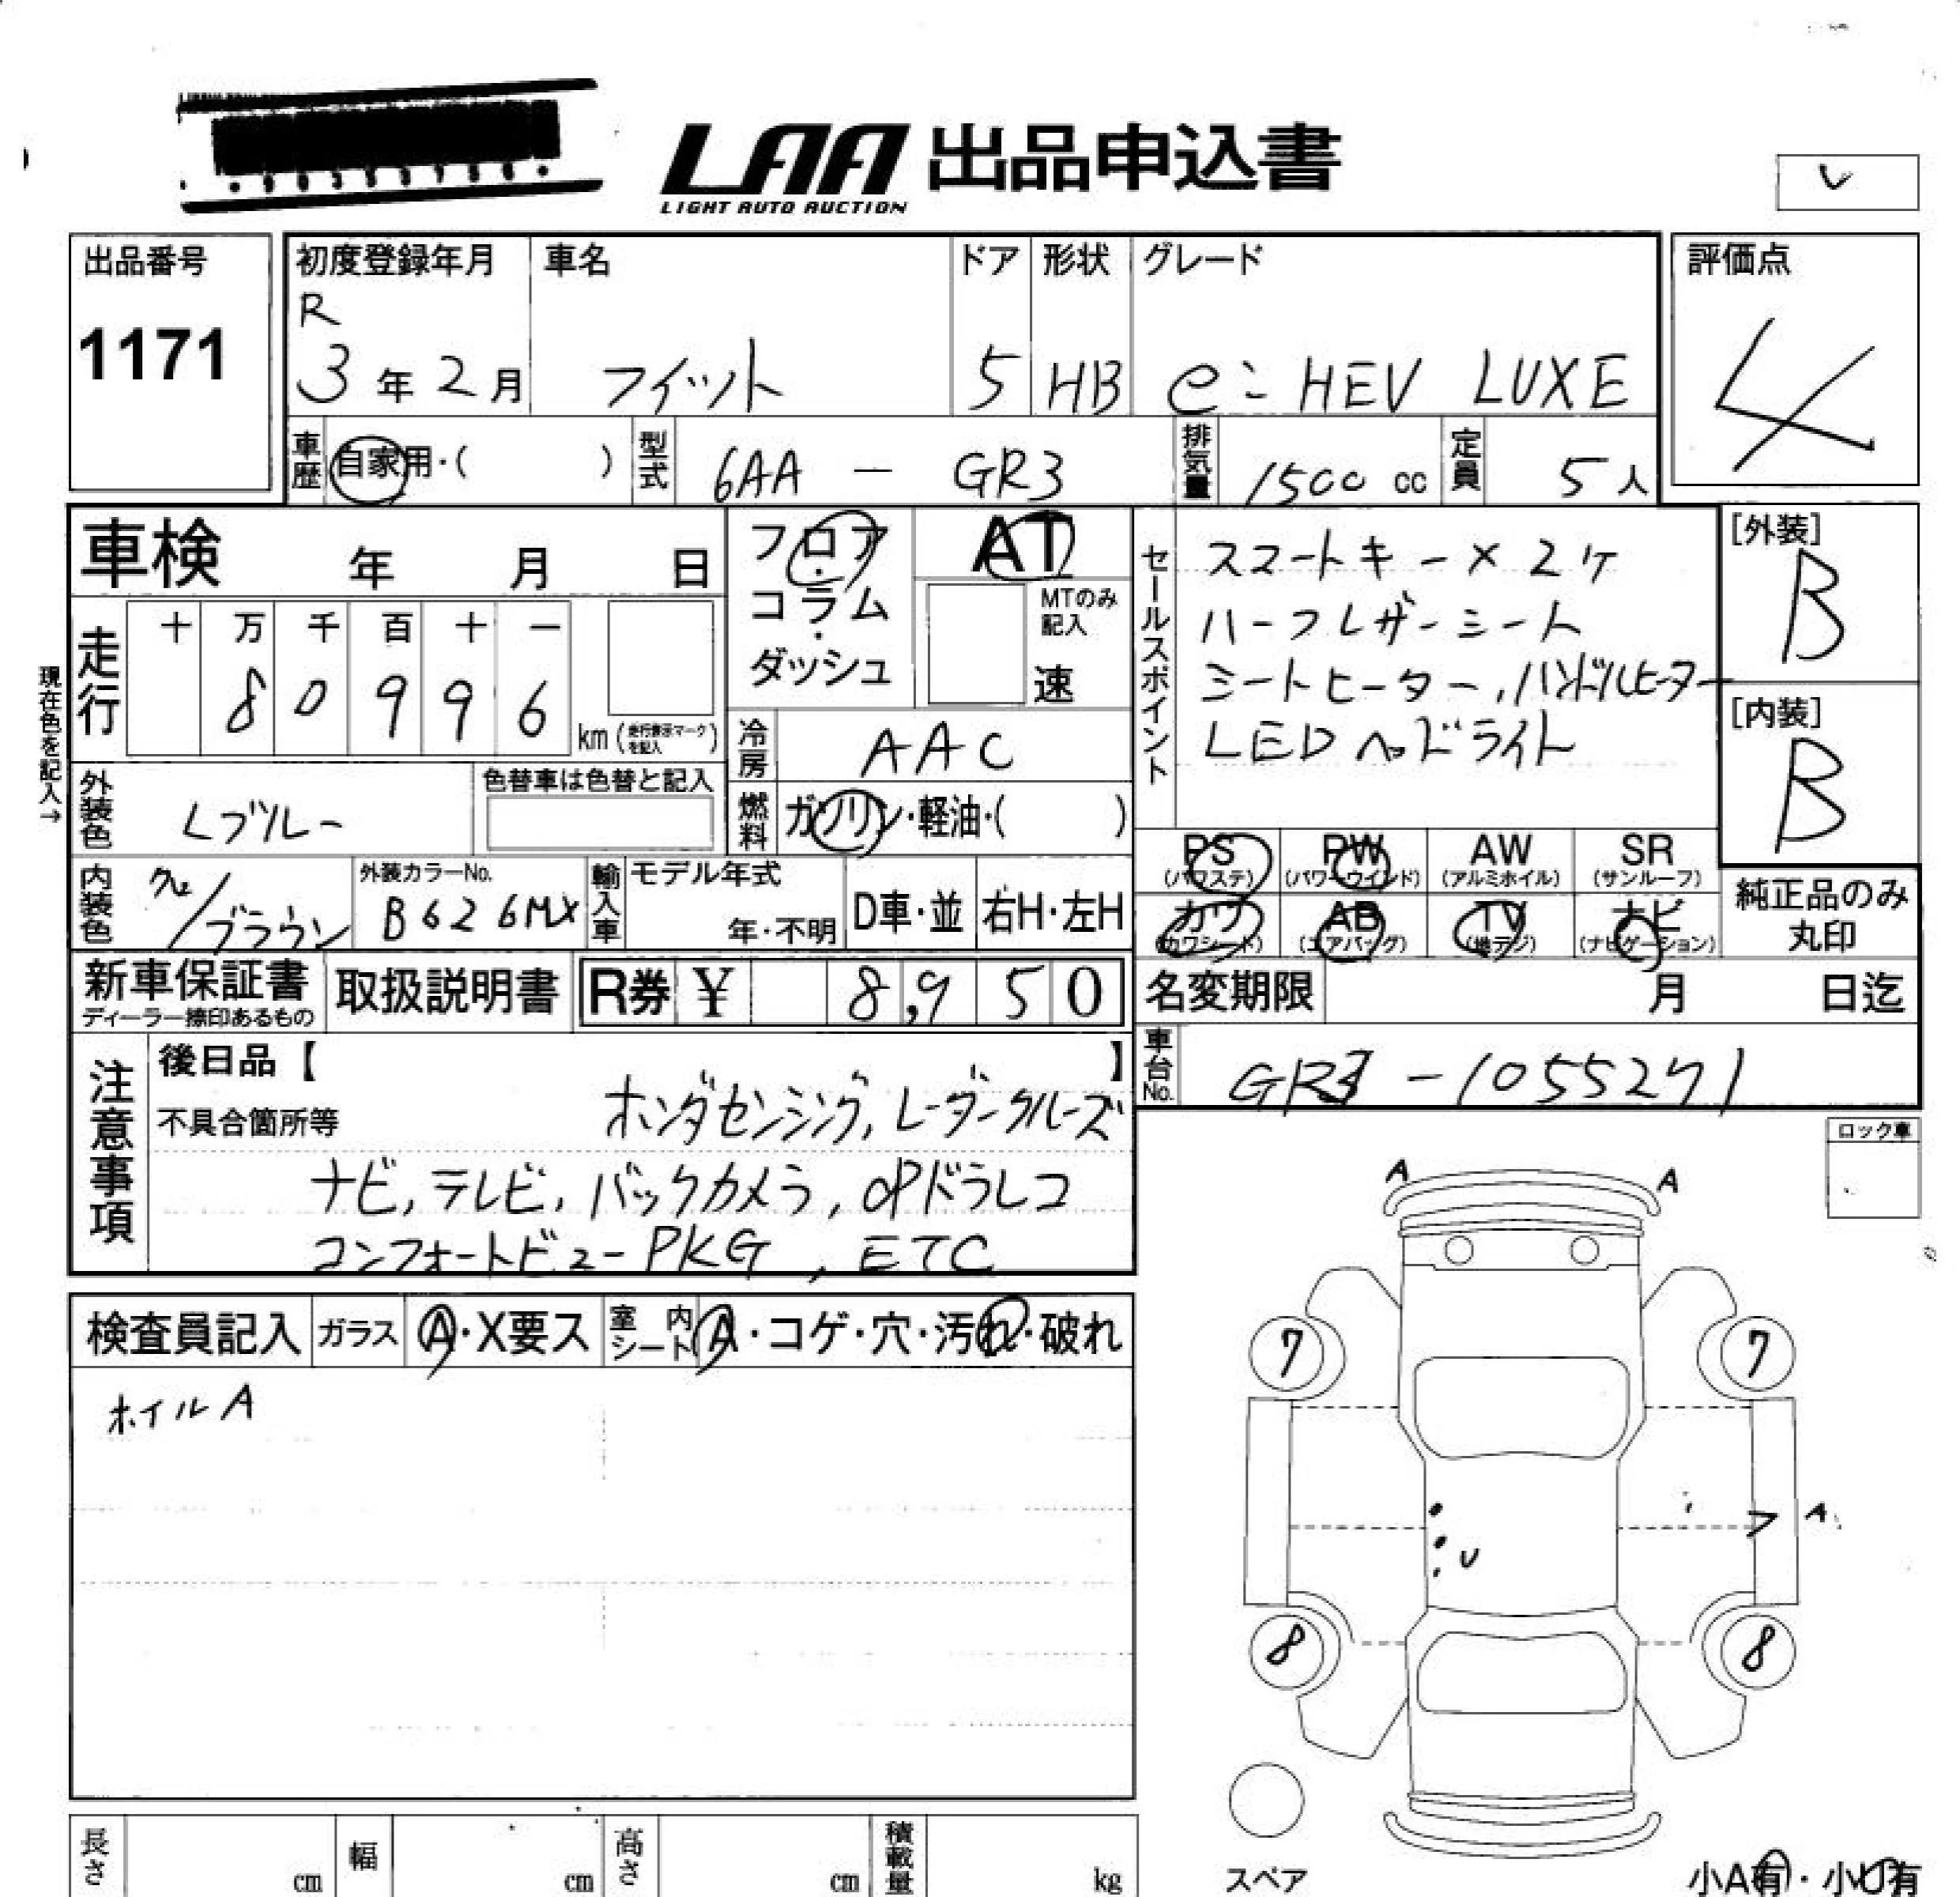 LAA 出品申込書
LIGHT AUTO AUCTION
レ
出品番号
1171
初度登録年月
R
3年2月
車名
フィット
ドア
5
形状
HB
グレード
e:HEV LUXE
評価点
4
車歴 自家用・( )
型式 6AA - GR3
排気量 1500 cc
定員 5人
車検 年 月 日
フロア・コラム・ダッシュ
AT
MTのみ記入
速
走行
十 万 千 百 十 一
8 0 9 9 6 km (走行表示マークを記入)
現在色を記入→
冷房 AAC
燃料 ガソリン・軽油・( )
外装色 Lブルー
色替車は色替と記入
内装色 グレー/ブラウン
外装カラーNo.
B626MX
輸入車
モデル年式
年・不明
D車・並
右H・左H
セールスポイント
スマートキー×2ケ
ハーフレザーシート
シートヒーター, ハンドルヒーター
LEDヘッドライト
[外装]
B
[内装]
B
PS (パワステ)
PW (パワーウインド)
AW (アルミホイル)
SR (サンルーフ)
カワ (カワシート)
AB (エアバッグ)
TV (地デジ)
ナビ (ナビゲーション)
純正品のみ丸印
新車保証書
ディーラー捺印あるもの
取扱説明書
R券 ¥ 8,950
名変期限 月 日迄
車台No. GR3-1055271
注意事項
後日品【 】
不具合箇所等
ホンダセンシング, レーダークルーズ
ナビ, テレビ, バックカメラ, OPドラレコ
コンフォートビューPKG, ETC
ロック車
A A
検査員記入
ガラス A・X要ス
室内シート A・コゲ・穴・汚れ・破れ
ホイルA
7 7
A
U
8 8
スペア
小A有・小U有
長さ cm
幅 cm
高さ cm
積載量 kg